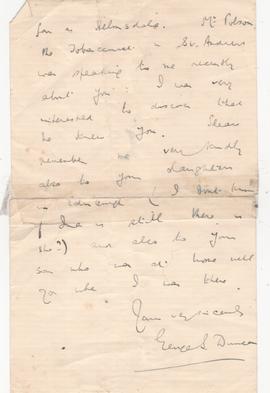 son in Helmsdale. Mr Polson
the Tobacconist in St. Andrews
was speaking to me recently
about you. I was very
interested to discover that
he knew you. Please
remember me very kindly
also to your daughter
in Edinburgh ( I think
( Ina is still there is
she?) and also to your
son who was at home with
you when I was there.
Yours very sincerely
George S. Duncan